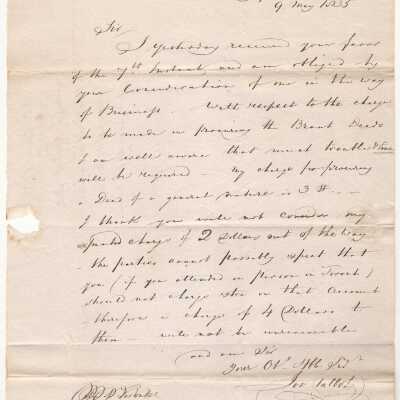 9 May 1835
Sir
I yesterday received your favor
of the 7th Instant, and am obliged by
your Consideration of me in the way
of Business - With respect to the charge
to be made in procuring the Brant Deeds
I am well aware that much trouble & time
will be required - my charge for procuring
a Deed of a general nature is 3 $ -
I think you will not consider my
charge of 2 Dollars out of the way
the parties cannot possibly expect that
you (if you attended in person in Toronto)
should not charge also on that Account
- therefore a charge of 4 Dollars to
them - will not be unreasonable
and am Sir
Your Obt. Hble Sert